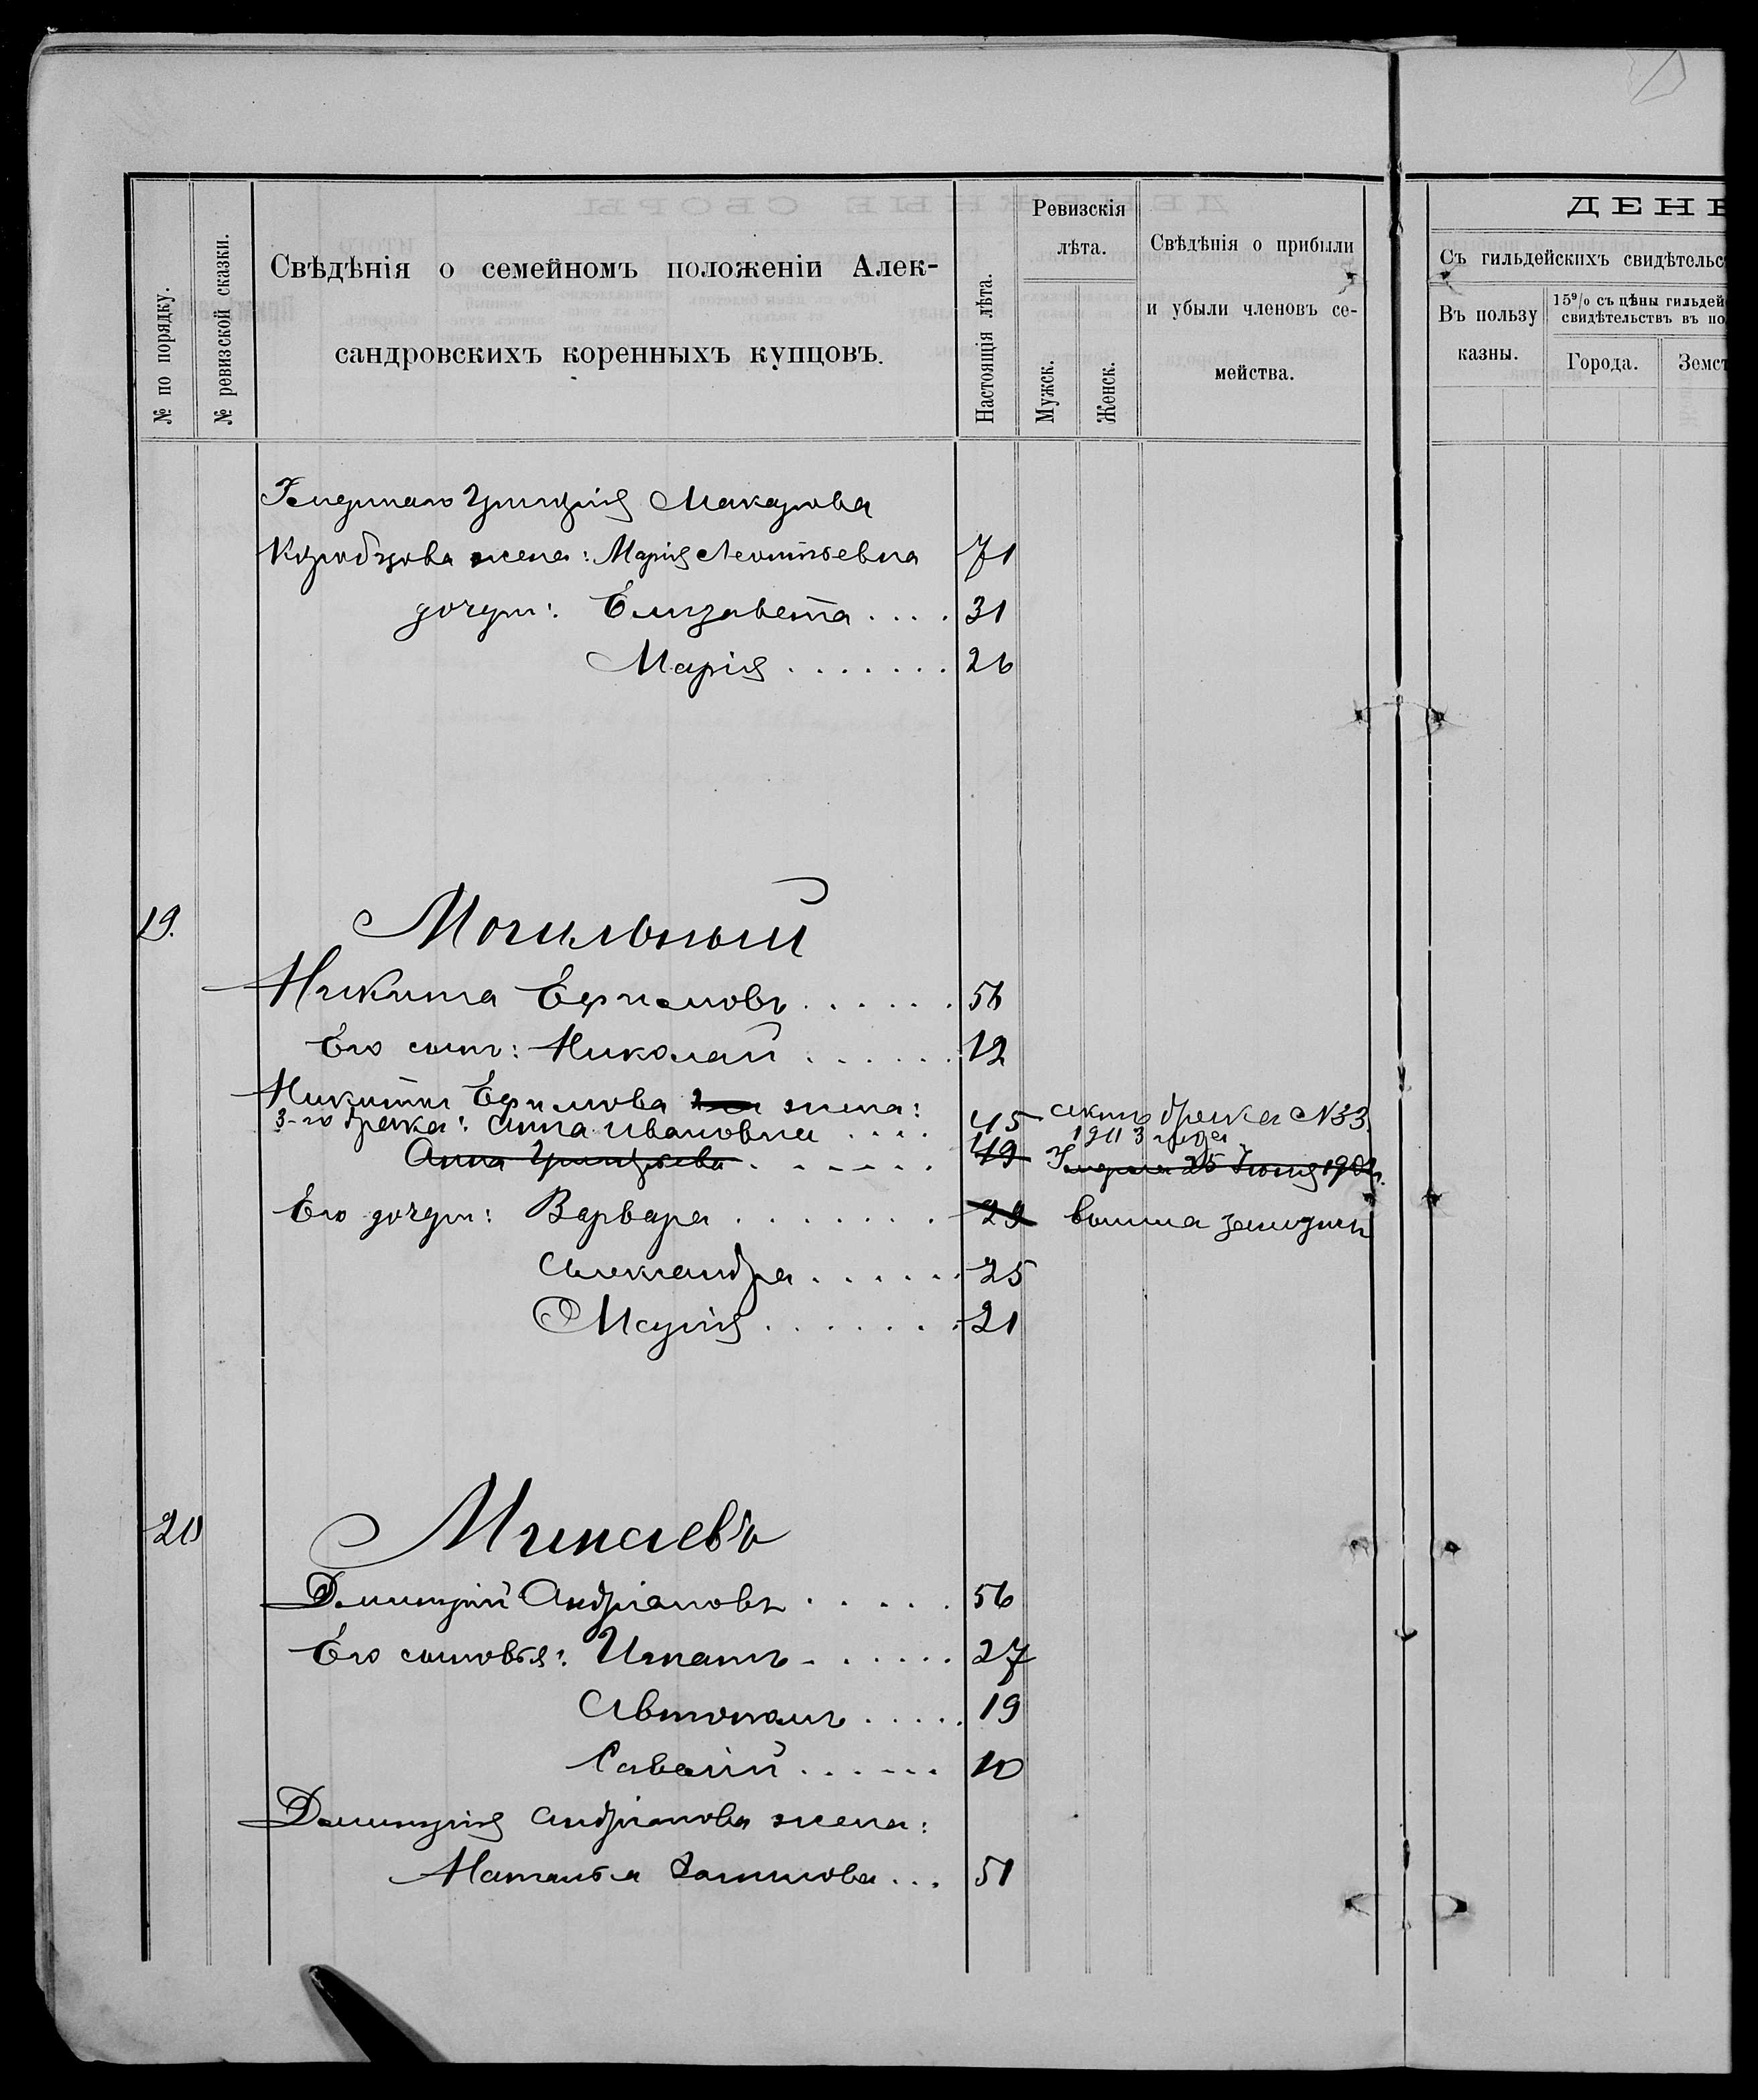 № по порядку.
№ ревизской сказки.
Свѣдѣнія о семейномъ положеніи Алек-
сандровскихъ коренныхъ купцовъ.
Настоящія лѣта.
Ревизскія
лѣта.
Мужск.
Женск.
Свѣдѣнія о прибыли
и убыли членовъ се-
мейства.
ДЕНЕ
Съ гильдейскихъ свидѣтельс
Въ пользу
казны.
15% съ цѣны гильдей
свидѣтельствъ въ по
Города.
Земст
Умершаго Григорія Макарова
жена: Марія Леонтьевна 71
дочери: Елизавета . . . . 31
Марія . . . . . . . 26
19. Могильный
Никита Ефимовъ . . . . . . 56
Его сынъ: Николай . . . . . . 12
Никиты Ефимова 2-я жена:
3-го брака: Анна Ивановна . . . . 45 актъ брака №33.
1903 года
Анна Григорьева . . . . . . 49 Умерла 25 Іюня 1902 г.
Его дочери: Варвара . . . . . . . 29 вышла замужъ
Александра . . . . . . 25
Марія . . . . . . . 21
20 Минаевъ
Дмитрій Андріановъ . . . . . 56
Его сыновья: Игнатъ . . . . . . 27
Автономъ . . . . . 19
Савватій . . . . . . 10
Дмитрія Андріанова жена:
Наталья . . . 51